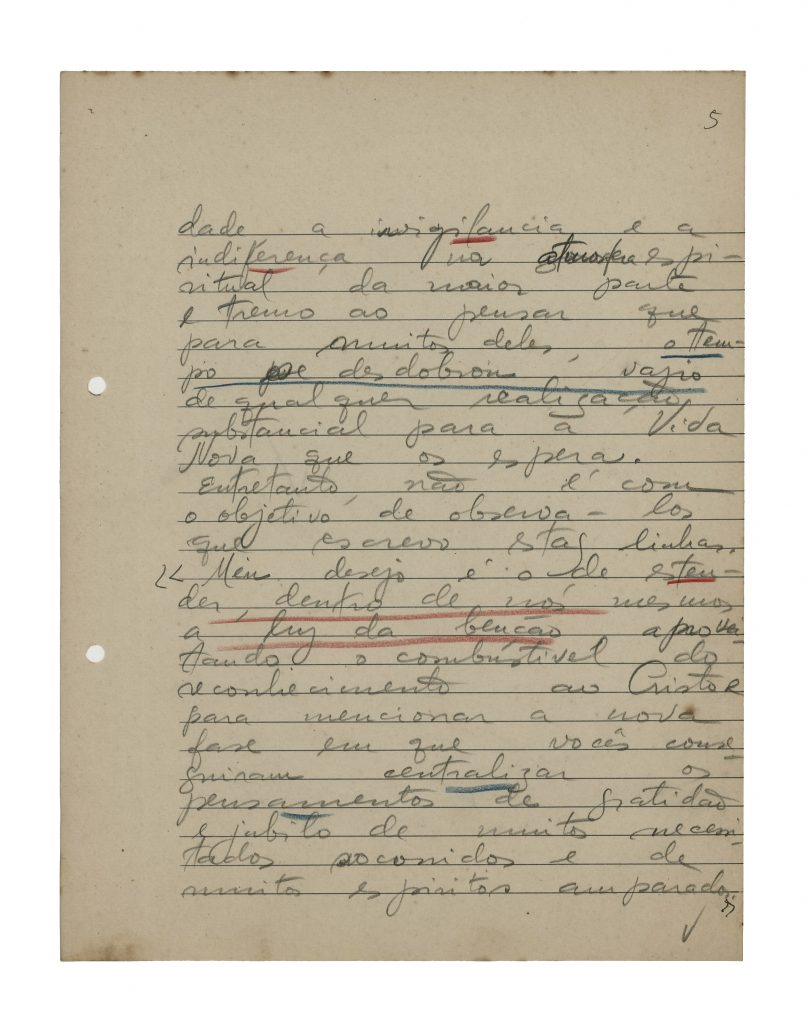 5
dade a invigilancia e a
indiferença na atmosfera espi-
ritual da maior parte
e tremo ao pensar que
para muitos deles, o tem-
po se desdobrou vazio
de qualquer realização
substancial para a Vida
Nova que os espera.
Entretanto, não é com
o objetivo de observa-los
que escrevo estas linhas.
Meu desejo é o de esten-
der, dentro de nós mesmos
a luz da benção aprovei
tando o combustivel do
reconhecimento ao Cristo e
para mencionar a nova
fase em que vocês conse
guiram centralizar os
pensamentos de gratidão
e jubilo de muitos necessi
tados socorridos e de
muitos espiritos amparados